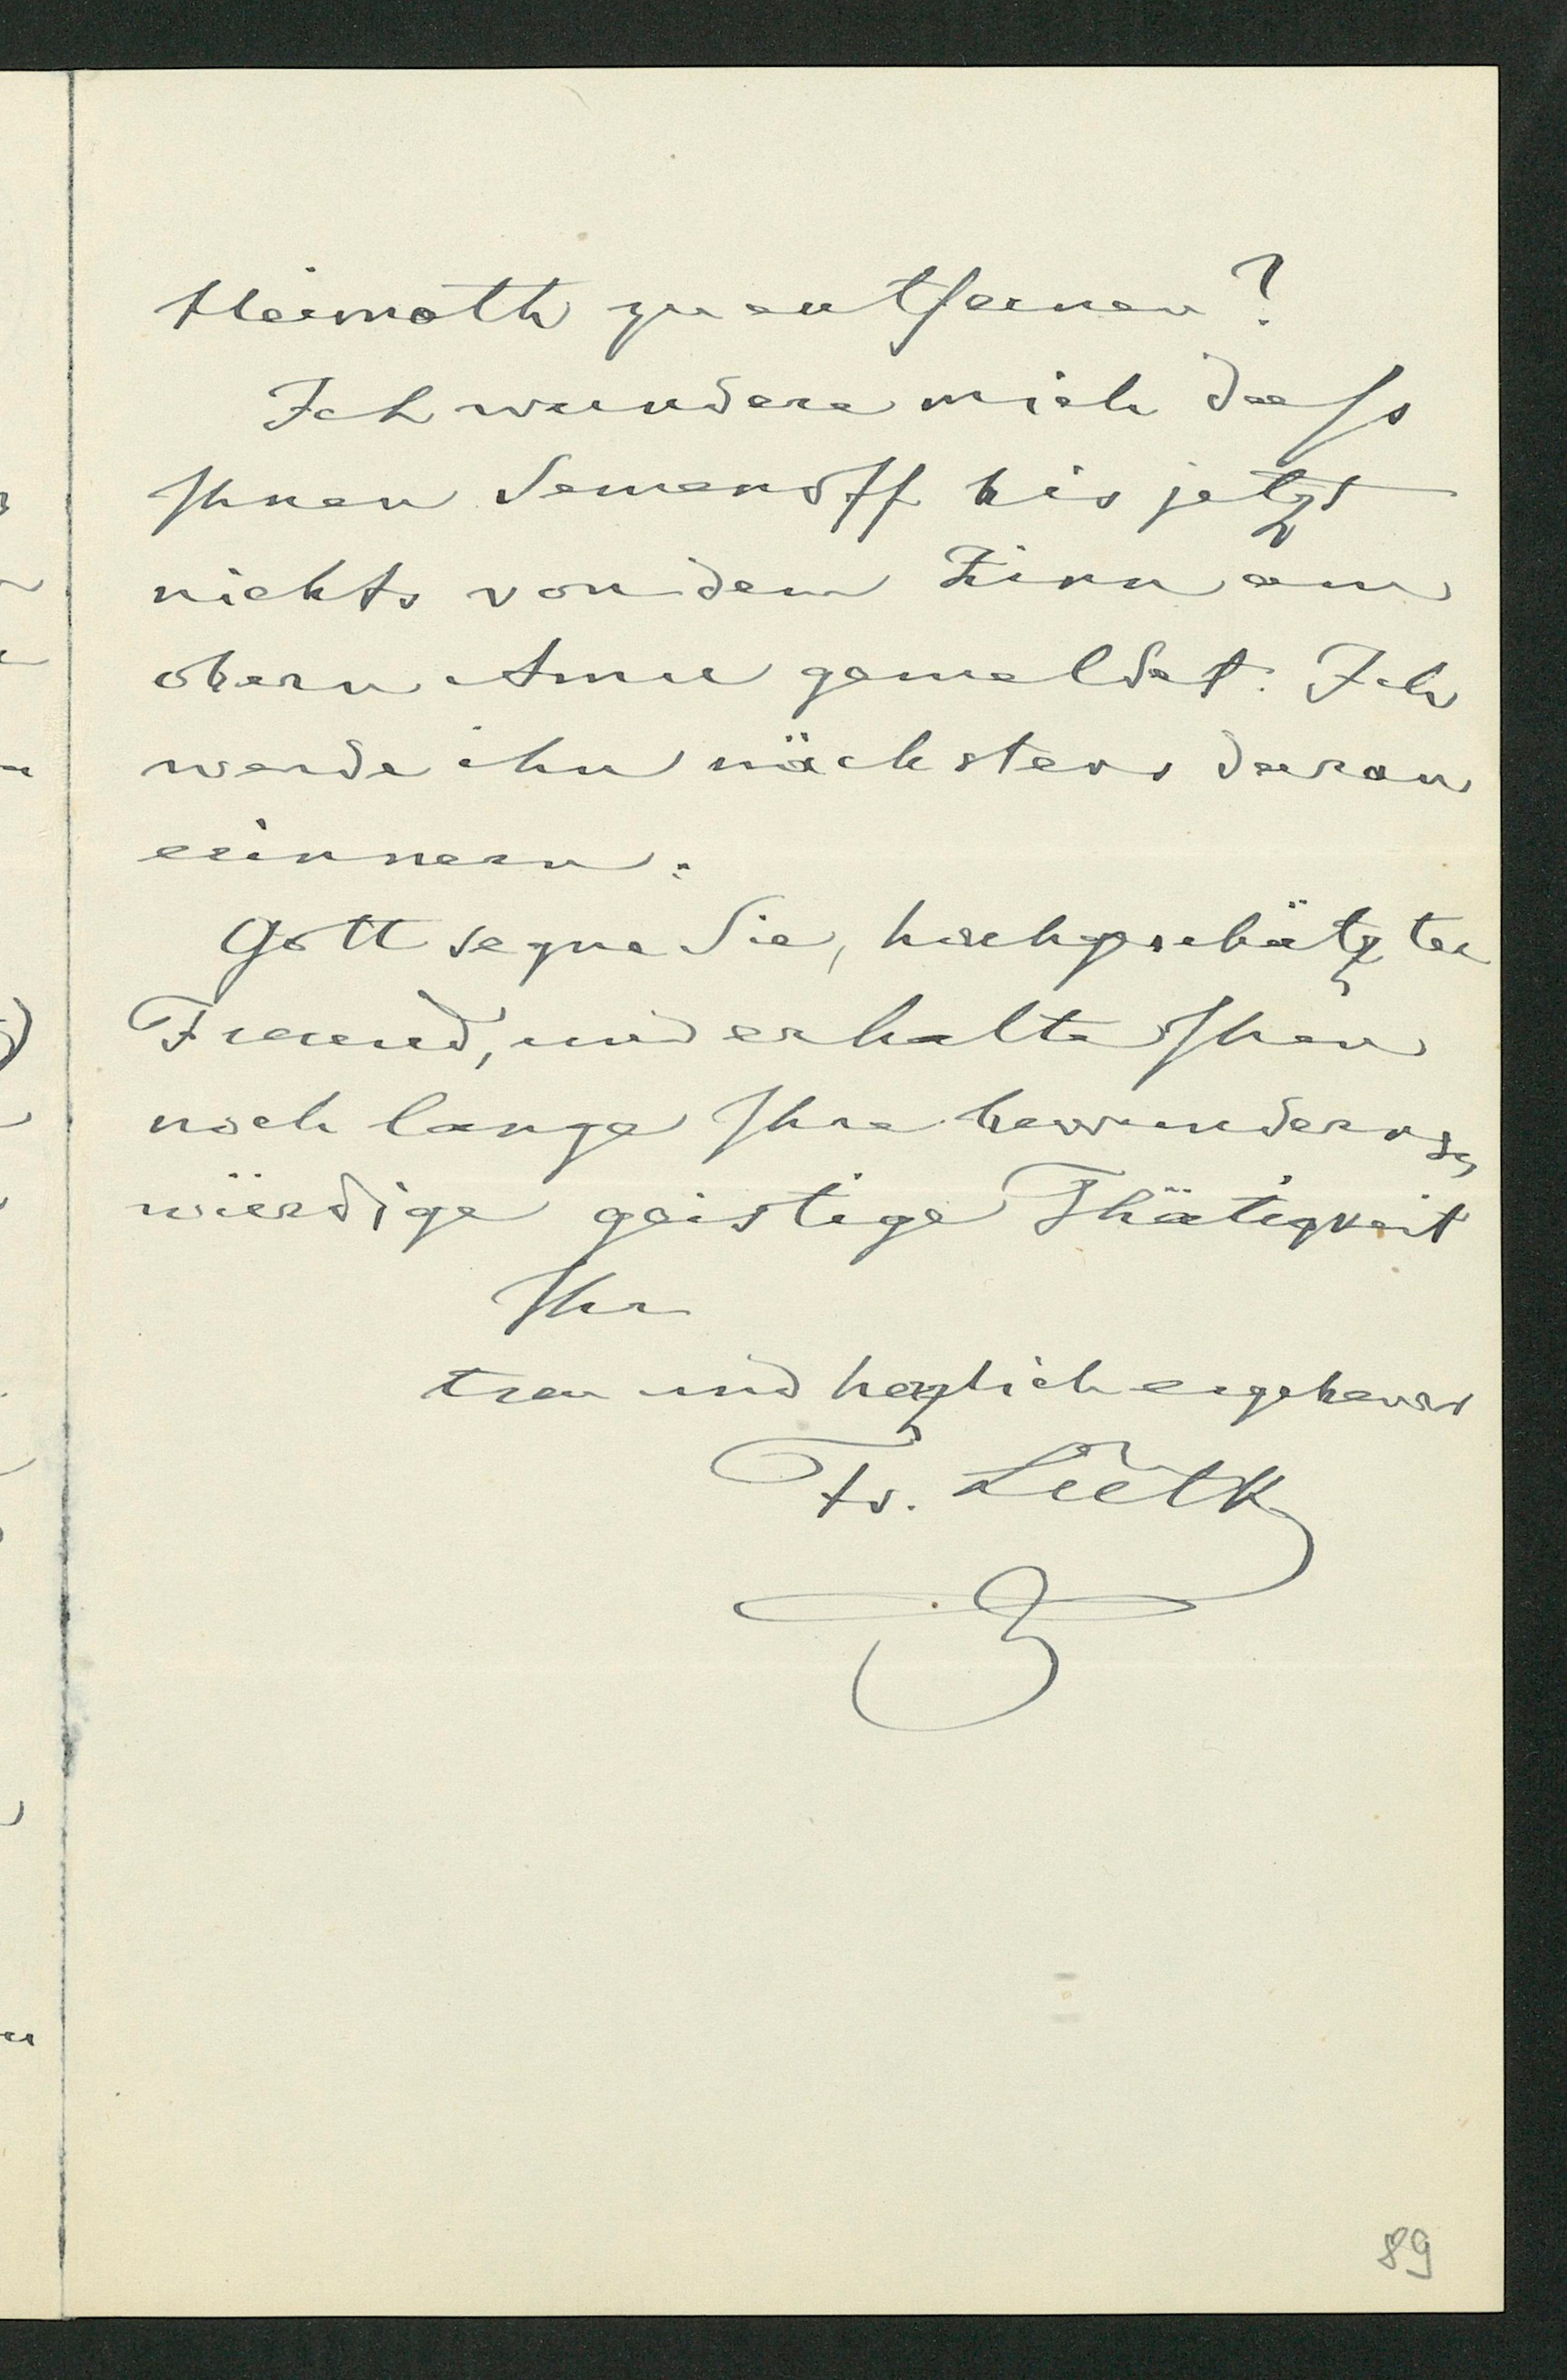 Heimath zu entfernen?
Ich wundere mich dass
Ihnen Semenoff bis jetzt
nichts von dem Zinn am
obern Amu gemeldet. Ich
werde ihn nächstens daran
erinnern.
Gott segne Sie, hochgeschätzter
Freund, und erhalte Ihnen
noch lange Ihre bewunderns-
würdige geistige Thätigkeit
Ihr
treu und herzlich ergebener
Fr. Lütke
89